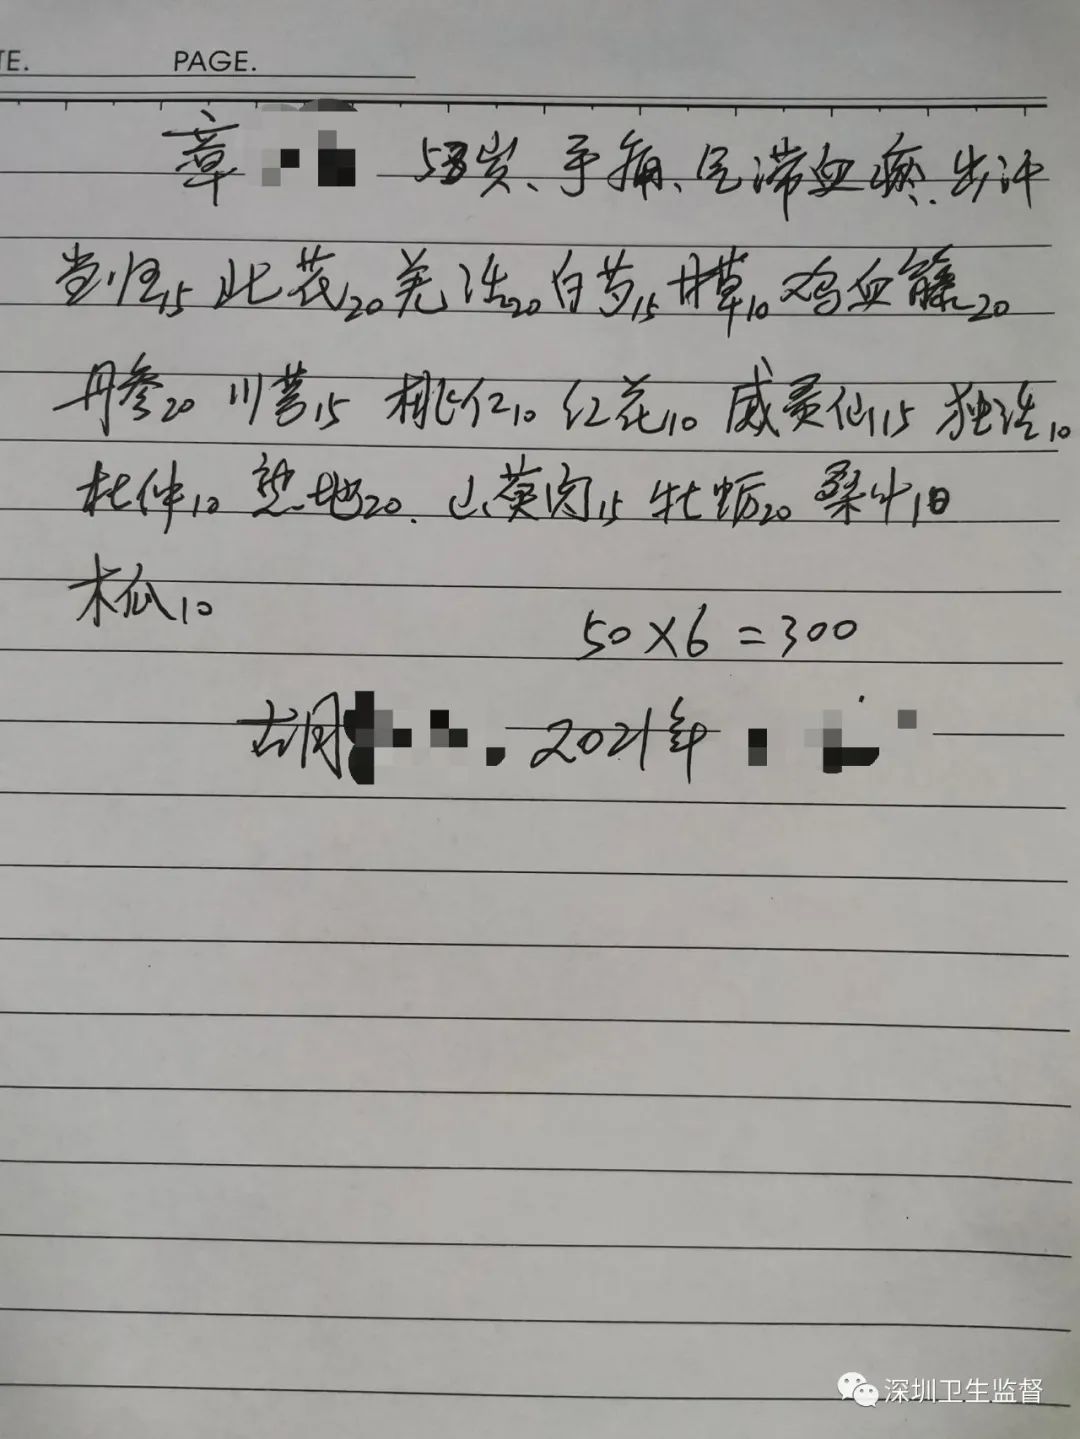 TE. PAGE.
章 岁、手痛、气滞血瘀.
当归15 花20 羌活20 白芍15 10 鸡血藤20
丹参20 川芎15 桃仁10 红花10 威灵仙15 独活10
杜仲10 熟地20. 山萸肉15 牡蛎20 桑叶10
木瓜10
50×6=300
胡 2021年
深圳卫生监督